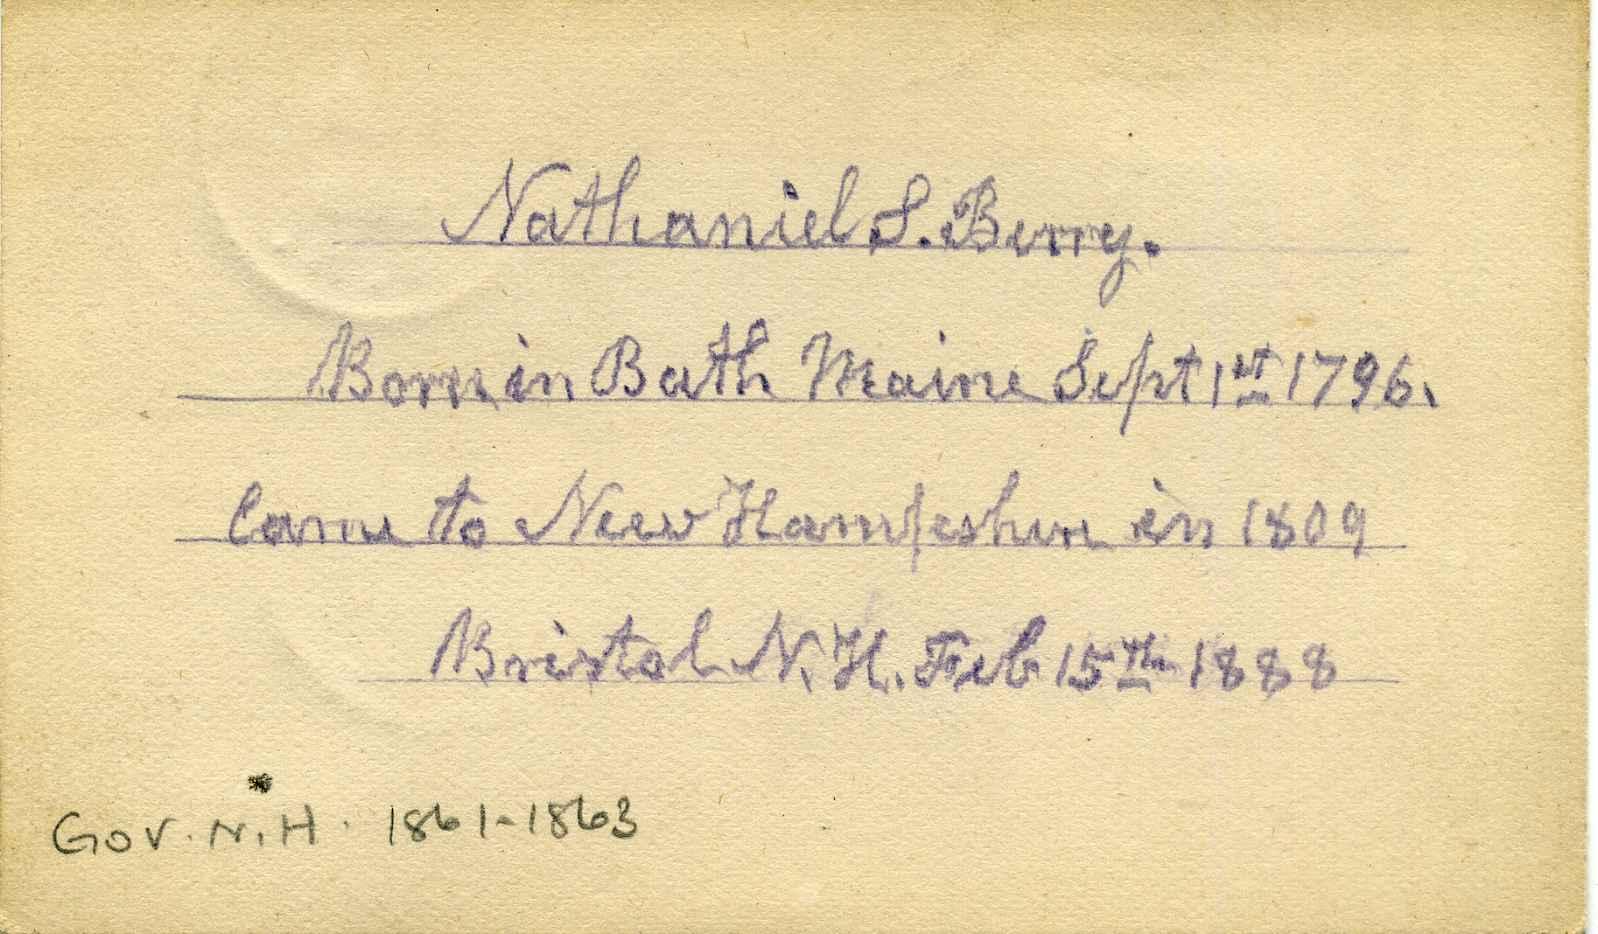 Nathaniel S. Berry.
Born in Bath Maine Sept 1st 1796.
Came to New Hampeshire in 1809
Bristol N.H. Feb 15th 1888
Gov. N.H. 1861-1863